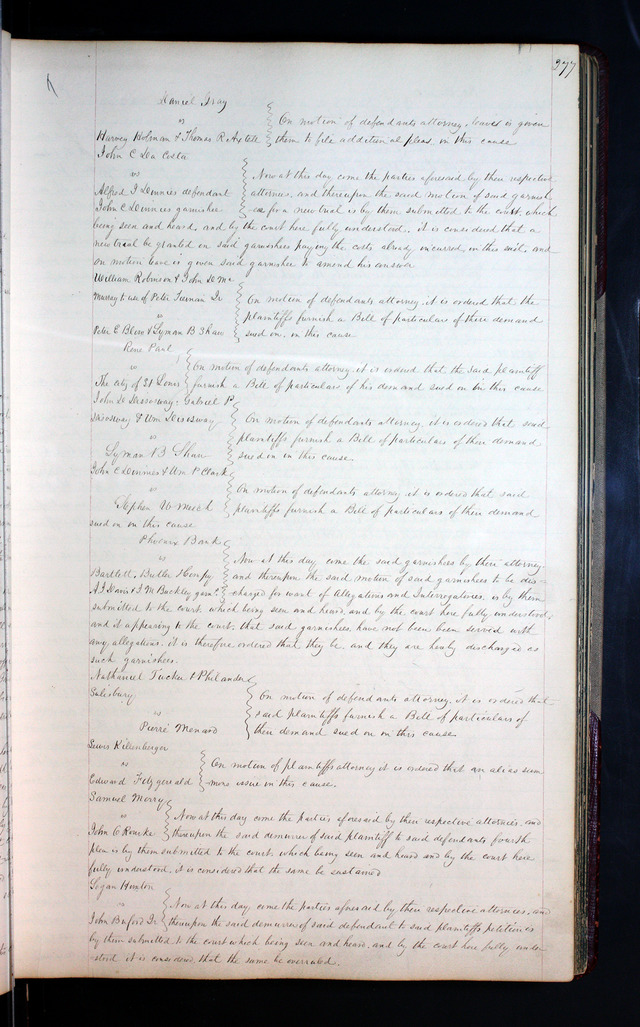 377
Daniel Gray
vs
Harvey Holman & Thomas R. Axtell
On motion of defendants attorney, leave is given
them to file additional pleas in this cause
John C Da Costa
vs
Alfred J Dennies defendant
John C Dennies garnishee
Now at this day come the parties aforesaid by their respective
attornies, and thereupon the said motion of said garnish
ee for a new trial is by them submitted to the court, which
being seen and heard, and by the court here fully understood, it is considered that a
new trial be granted on said garnishees paying the costs already incurred in this suit, and
on motion leave is given said garnishee to amend his answer
William Robinson & John D Mc
Murray to use of Peter
vs
Peter E Blow & Lyman B Shaw
On motion of defendants attorney, it is ordered that the
plaintiffs furnish a Bill of particulars of their demand
sued on, in this cause
Rene Paul
vs
The City of St Louis
On motion of defendants attorney it is ordered that the said plaintiff
furnish a Bill of particulars of his demand sued on in this cause
John D Disosway, Gabriel P
Disosway & Wm Disosway
vs
Lyman B Shaw
On motion of defendants attorney, it is ordered that said
plaintiffs furnish a Bill of particulars of their demand
sued on in this cause.
John C Dennies & Wm P Clark
vs
Stephen W Meech
On motion of defendants attorney it is ordered that said
plaintiffs furnish a Bill of particulars of their demand
sued on in this cause
Phoenix Bank
vs
Bartlett, Butler &
A J Davis & J M Buckley garns
Now at this day come the said garnishees by their attorney
and thereupon the said motion of said garnishees to be dis
charged for want of Allegations and Interrogatories, is by them
submitted to the court, which being seen and heard, and by the court here fully understood,
and it appearing to the court, that said garnishees, have not been been served with
any allegations, it is therefore ordered that they be, and they are hereby discharged as
such garnishees.
Nathaniel Tucker & Philander
Salisbury
vs
Pierre Menard
On motion of defendants attorney, it is ordered that
said plaintiffs furnish a Bill of particulars of
their demand sued on in this cause
Lewis Kilemberger
vs
Edward Fitzgerald
On motion of plaintiffs attorney it is ordered that an alias sum
mons issue in this cause.
Samuel Merry
vs
John O Rourke
Now at this day come the parties aforesaid by their respective attornies, and
thereupon the said demurrer of said plaintiff to said defendants fourth
plea is by them submitted to the court, which being seen and heard and by the court here
fully understood, it is considered that the same be sustained
Logan Hunton
vs
John Buford Jr
Now at this day, come the parties aforesaid by their respective attornies, and
thereupon the said demurrer of said defendant to said plaintiffs petition is
by them submitted to the court which being seen and heard, and by the court here fully under
stood it is considered, that the same be overruled.